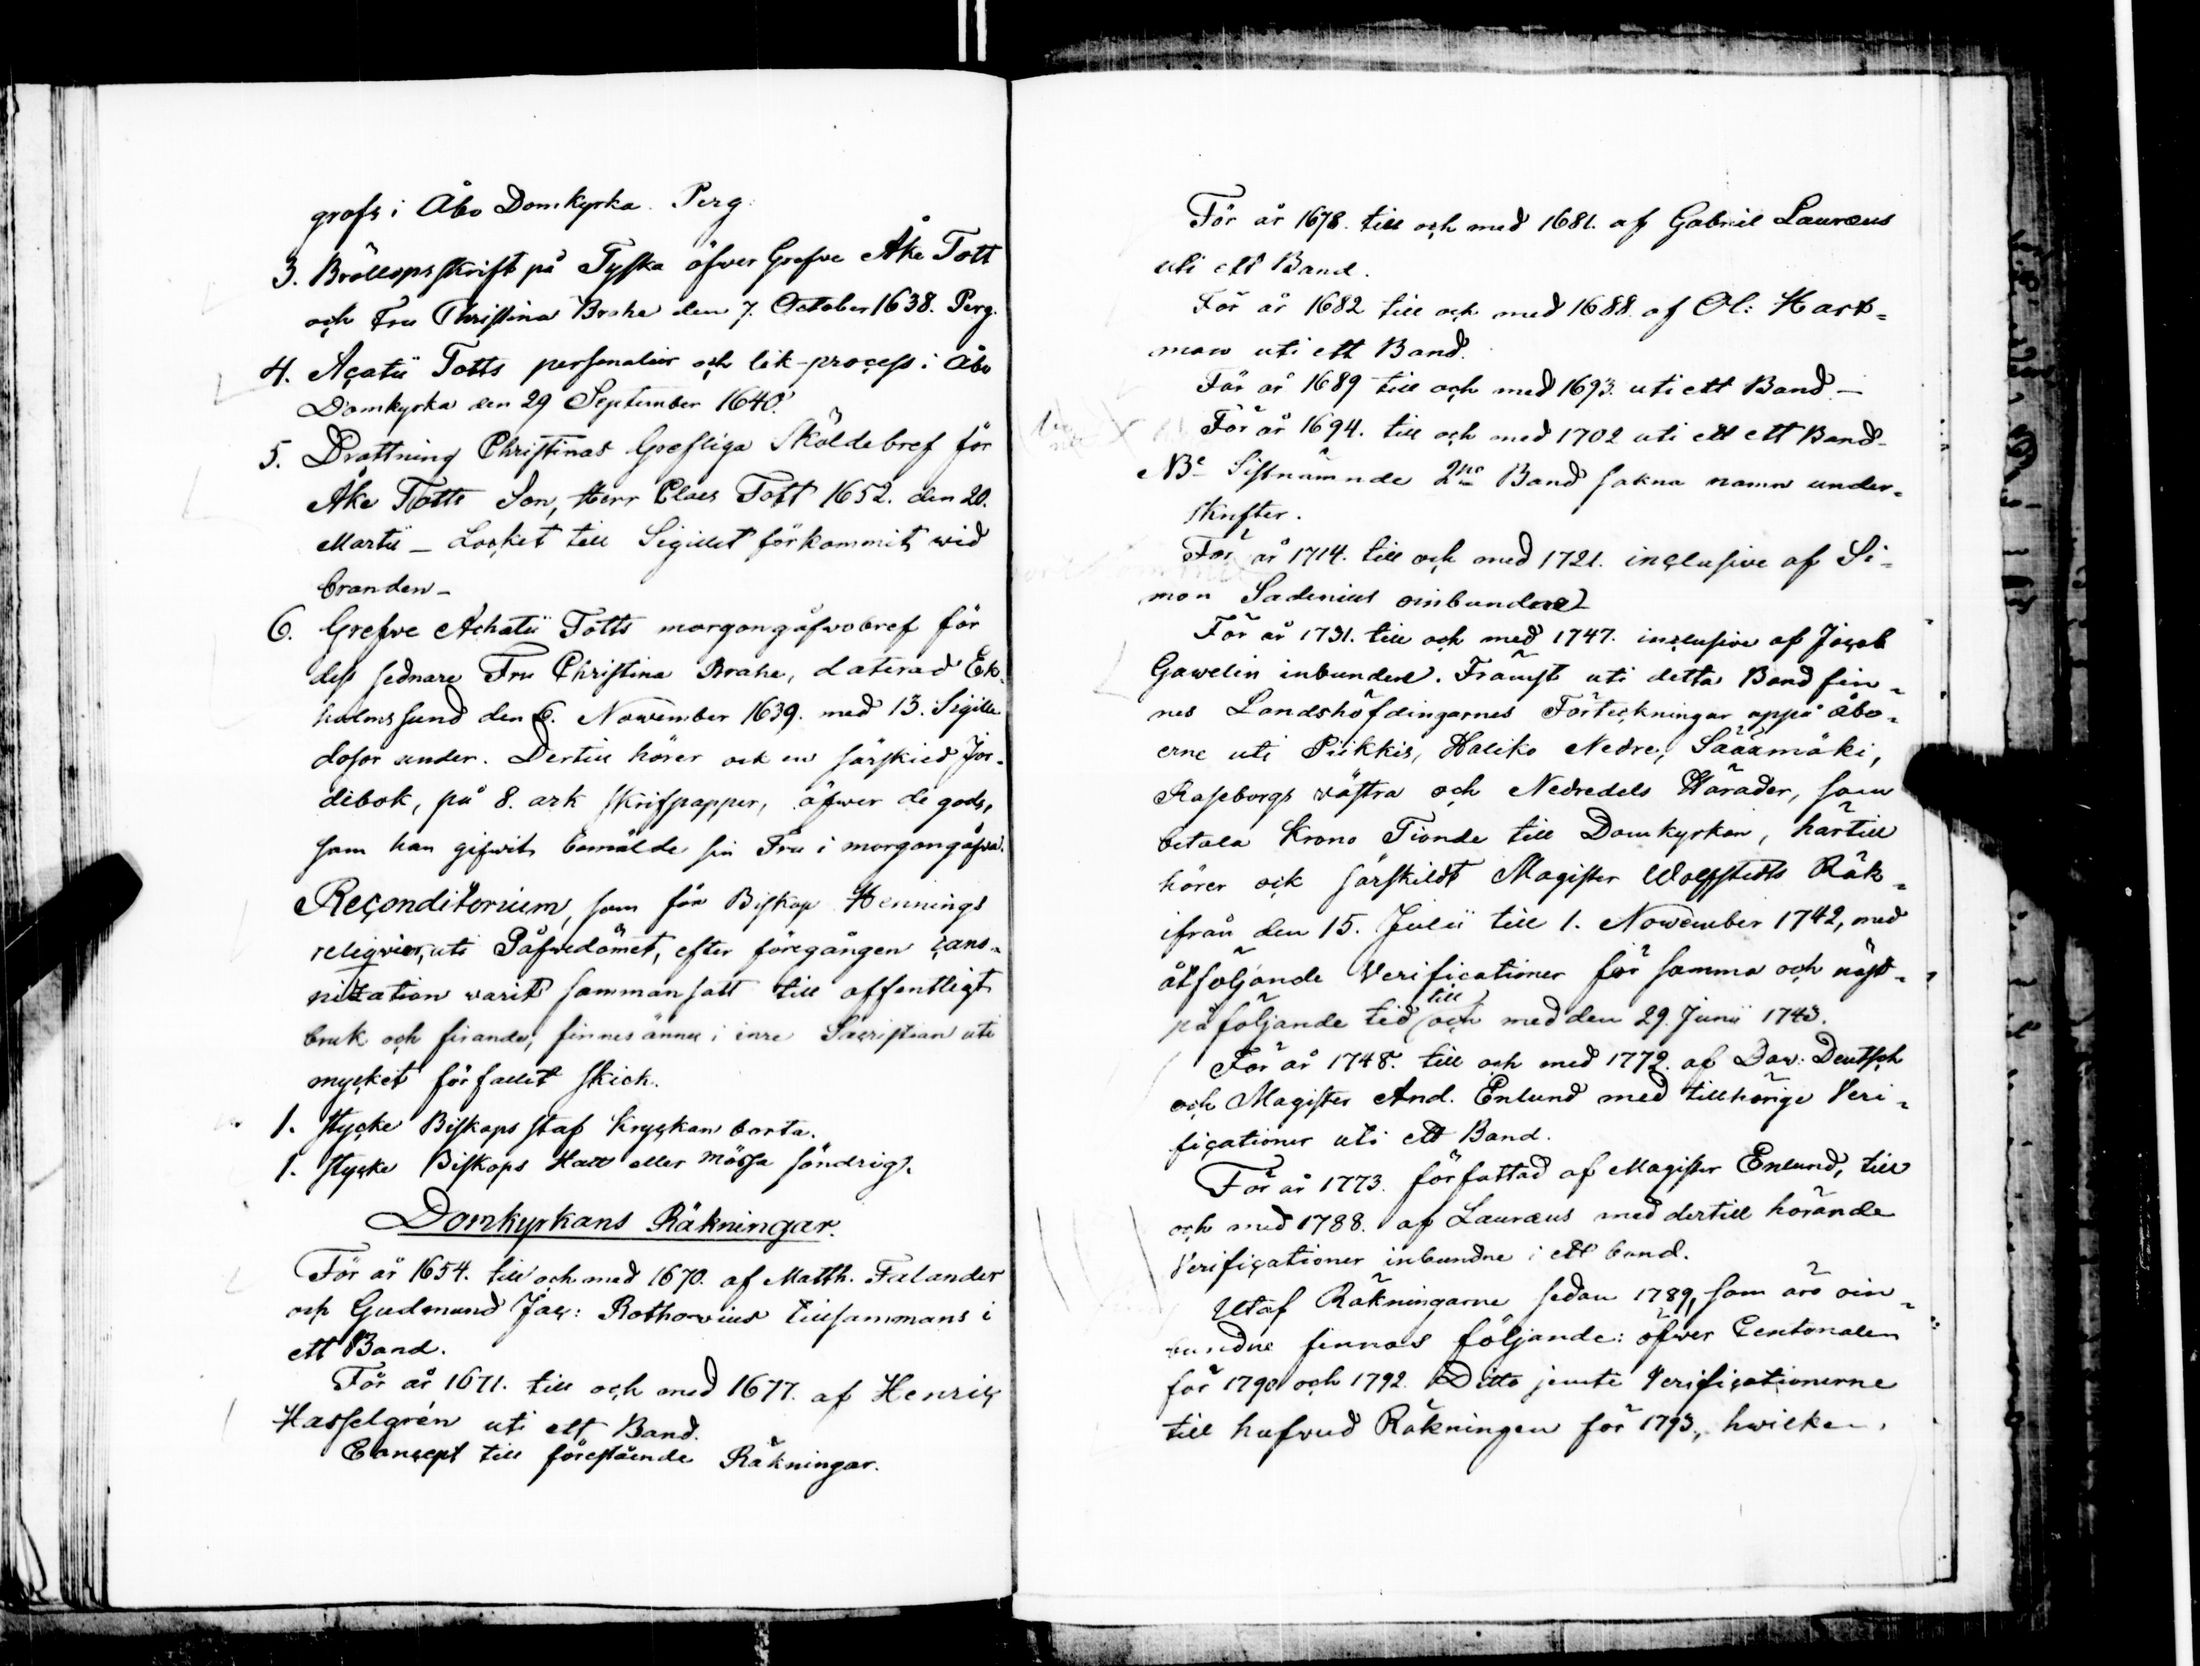 grafs i Åbo Domkyrka. Perg.
3. Bröllopsskrift på Tyska öfver Grefve Åke Tott
och Fru Christina Brahe den 7. October 1638. Perg.
4. Açatii Totts personalier och lik-process i Åbo
Domkyrka den 29 September 1640.
5. Drottning Christinas Grefliga Sköldebref för
Åke Totts Son, Herr Claes Tott 1652. den 20.
Martii – Locket till Sigillet förkommit wid
branden –
6. Grefve Achatii Totts morgongåfvobref för
dess sednare Fru Christina Brahe, daterad Ek-
holmssund den 6. November 1639. med 13. Sigill
dosor under. Dertill hörer ock en särskild Jor-
debok, på 8. ark skrifpapper, öfwer de gods,
som han gifwit bemälde sin Fru i morgongåfva.
Reconditorium, som för Biskop Hennings
reliqvier, uti Påfvedömet, efter föregången cano-
nization warit sammansatt till offentligt
bruk och firande, finnes ännu i inre Sacristian uti
mycket förfallet skick.
1. stycke Biskops staf kryckan borta.
1. stycke Biskops Hatt eller mössa söndrig.
Domkyrkans Räkningar.
För år 1654. till och med 1670. af Matth. Falander
och Gudmund Jac: Rothovius tillsammans i
ett Band.
För år 1671. till och med 1677. af Henric
Hasselgrén uti ett Band.
Concept till förestående Räkningar.
För år 1678. till och med 1681. af Gabriel Lauræus
uti ett Band.
För år 1682 till och med 1688. af Ol: Hart-
man uti ett Band.
För år 1689 till och med 1693. uti ett Band –
För år 1694. till och med 1702 uti ett ett Band
NB Sistnämnde 2ne Band sakna namn under-
skrifter.
För år 1714. till och med 1721. inclusive af Si-
mon Sadenius oinbundne
För år 1731. till och med 1747. inclusive af Jacob
Gawelin inbunden. Främst uti detta Band fin-
nes Landshöfdingarnes Förteckningar uppå Åbo-
erne uti Piikkis, Haliko Nedre, Sääxmäki,
Raseborgs västra och Nedredels Härader, som
betala Krono Tionde till Domkyrkan, härtill
hörer ock särskildt Magister Wolffstedts Räk-
ifrån den 15. Julii till 1. November 1742, med
åtföljande Verificationer för samma och näst-
påföljande tid till och med den 29. Junii 1743.
För år 1748. till och med 1772. af Dav: Deutsch
och Magister And. Enlund med tillhörige Veri-
ficationer uti ett Band.
För år 1773. författad af Magister Enlund, till
och med 1788. af Lauræus med dertill hörande
Verificationer inbundne i ett band.
Utaf Räkningarne sedan 1789, som äro oin-
bundne finnas följande: öfver Centonalen
för 1790 och 1792. Ditto jemte Verificationerne
till hufvud Räkningen för 1793, hwilken